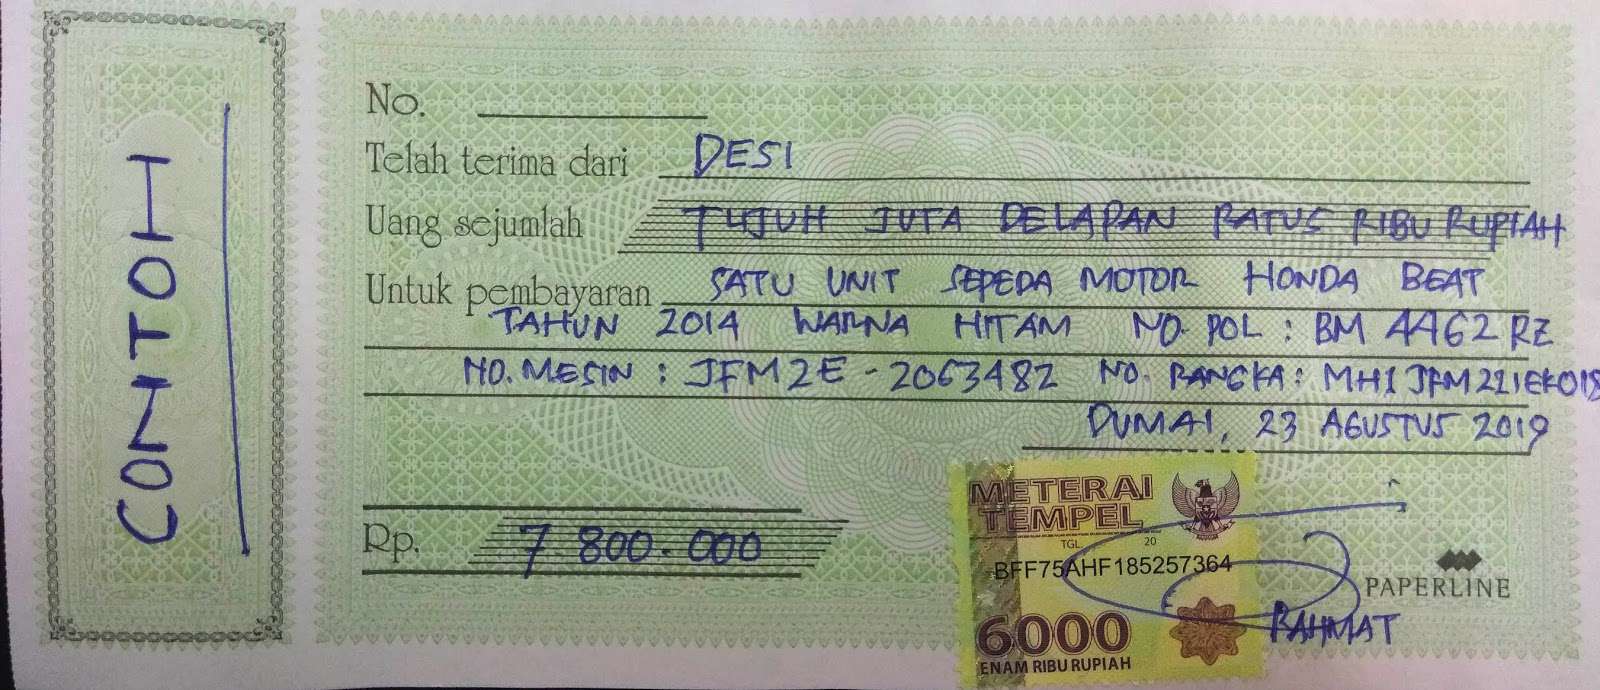 CONTOH
No.
Telah terima dari DESI
Uang sejumlah TUJUH JUTA DELAPAN RATUS RIBU RUPIAH
Untuk pembayaran SATU UNIT SEPEDA MOTOR HONDA BEAT
TAHUN 2014 WARNA HITAM NO. POL : BM 4462 RZ
NO. MESIN : JFM2E - 2063482 NO. RANGKA :
DUMAI, 23 AGUSTUS 2019
Rp. 7.800.000
METERAI
TEMPEL
TGL 20
BFF75AHF185257364
6000
ENAM RIBU RUPIAH
RAHMAT
PAPERLINE